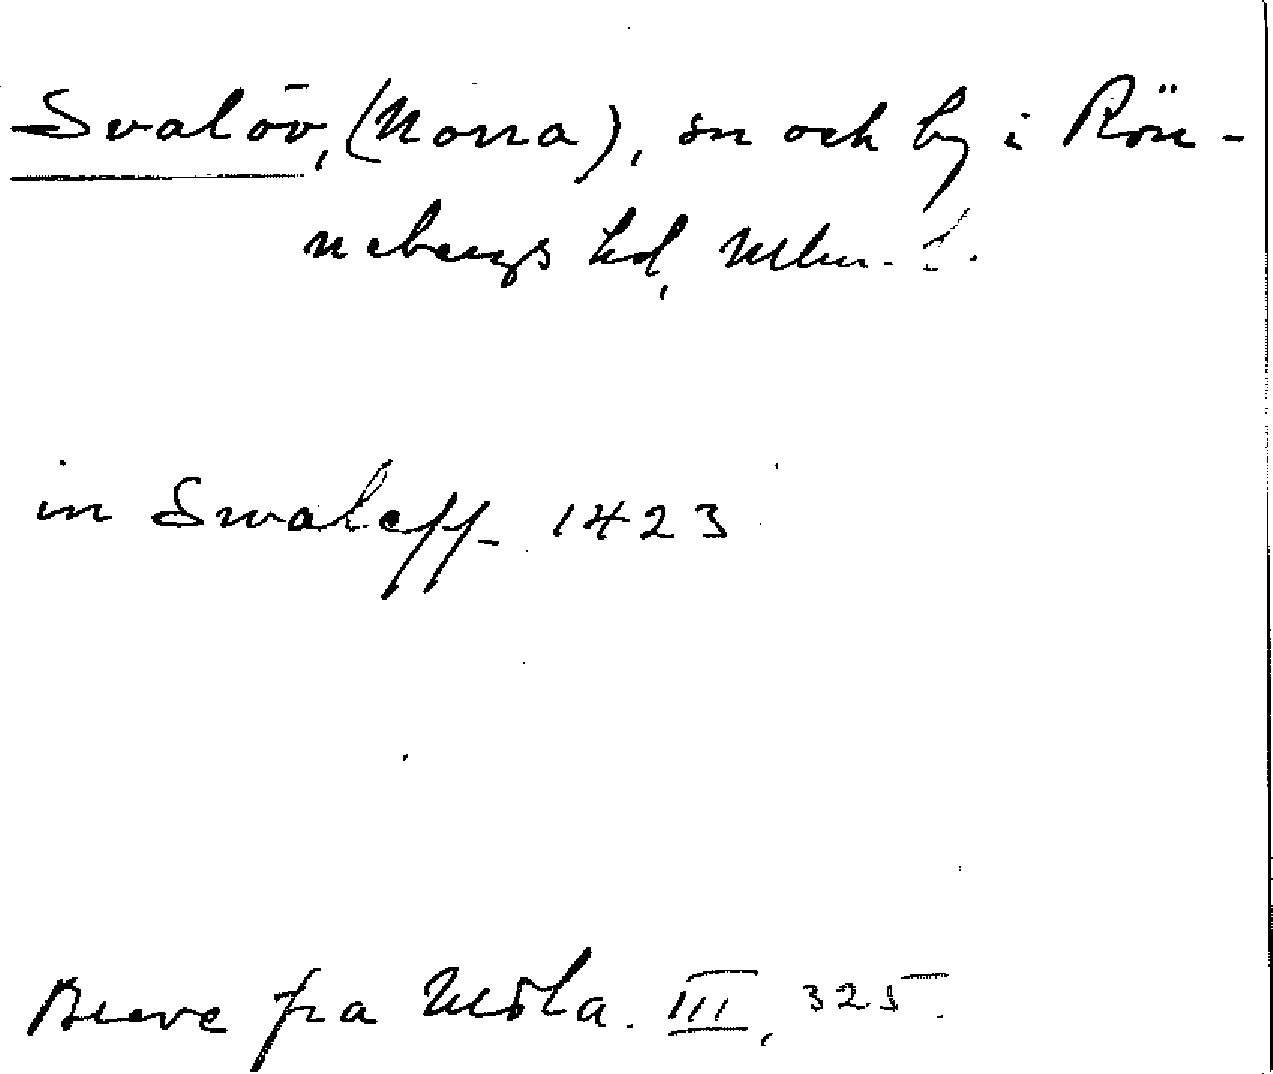 Svalöv, (Norra), sn och by i Rön-
nebergs hd, Mlm.
in Swaleff 1423
Breve fra Midda. III, 325